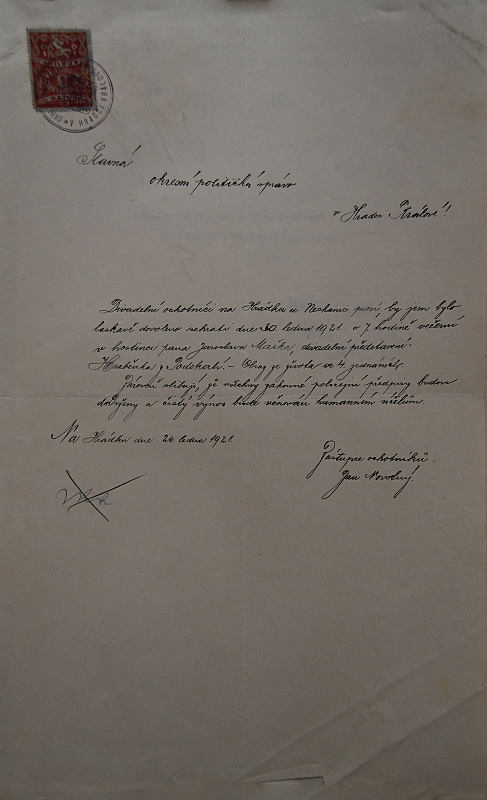 V HRADCI KRÁLOVÉ
Slavná
okresní politická správo
v Hradci Králové!
Divadelní ochotníci na Hrádku u Nechanic prosí, by jim bylo
laskavě dovoleno sehráti dne 30. ledna 1921 o 7. hodině večerní
v hostinci pana Jaroslava Maška, divadelní představení:
Hraběnka z Podskalí. – Obraz ze života ve 4. jednáních.
Zároveň slibují, že všechny zákonné policejní předpisy budou
dodrženy a čistý výnos bude věnován humanním účelům.
Na Hrádku dne 24. ledna 1921.
Zástupce ochotníků:
Jan Novotný.